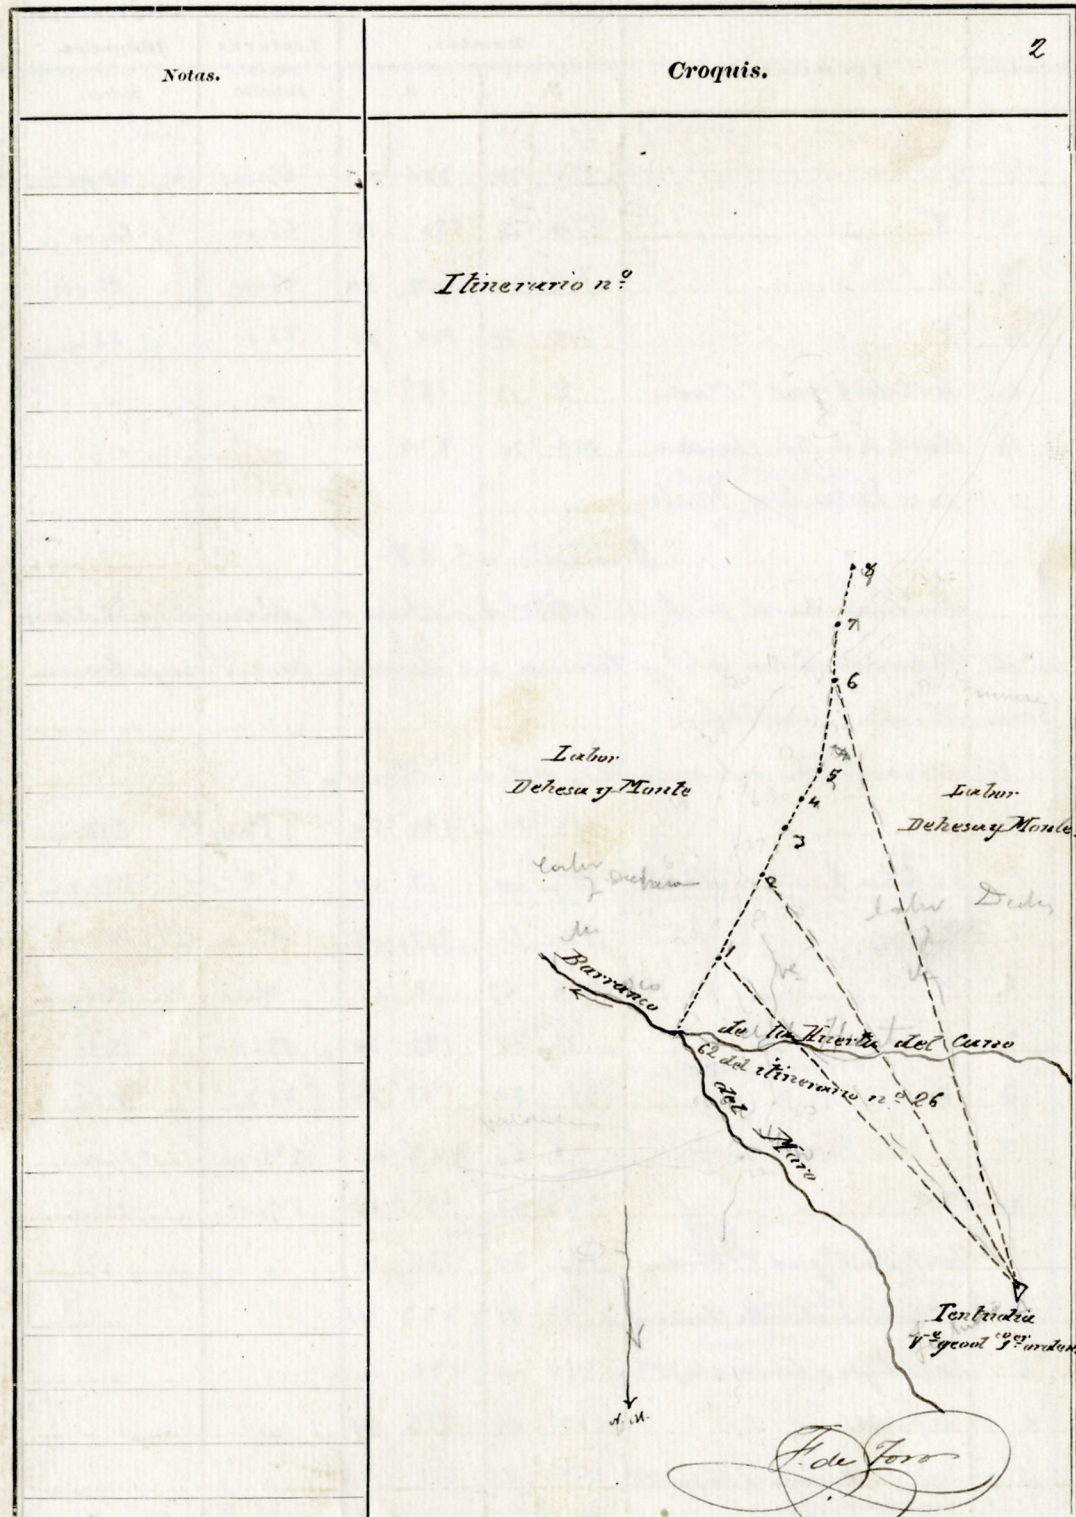 2
Notas.
Croquis.
Itinerario nº
8
7
6
5
4
3
2
1
Labor
Dehesa y Monte
Labor
Dehesa y Monte
Barranco
de la Huerta del Curro
62 del itinerario nº 26
del Moro
Tentudia
Vª geod. 1er orden
N. M.
F. de Toro